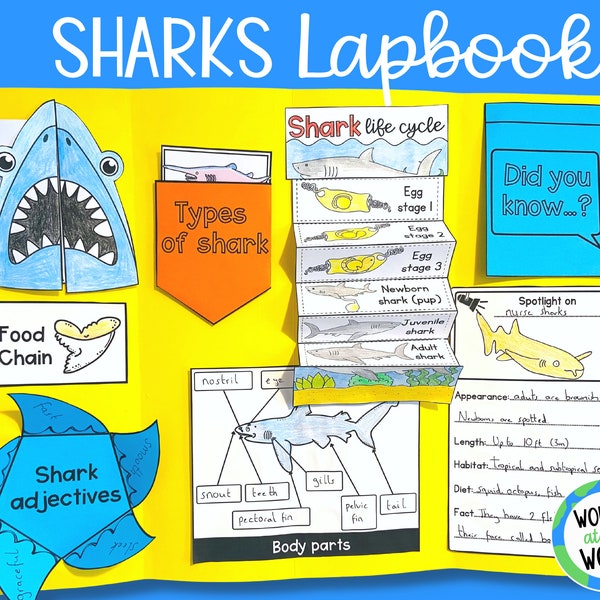 SHARKS Lapbook
Types
of shark
Shark life cycle
Egg
stage 1
Egg
stage 2
Egg
stage 3
Newborn
shark (pup)
Juvenile
shark
Adult
shark
Did you
know...?
Food
Chain
Shark
adjectives
fast
smooth
sleek
graceful
nostril
eye
snout
teeth
gills
pectoral fin
pelvic
fin
tail
Body parts
Spotlight on
nurse sharks
Appearance: adults are brownish
Newborns are spotted
Length: Up to 10ft (3m)
Habitat: tropical and subtropical
Diet: squid, octopus, fish
Fact: They have 2
their face called
at